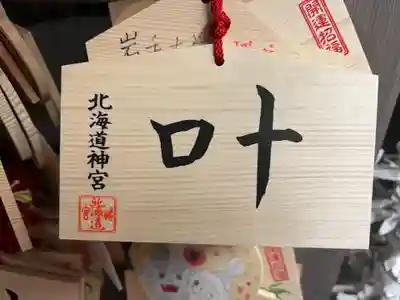 開運招福
叶
北海道神宮